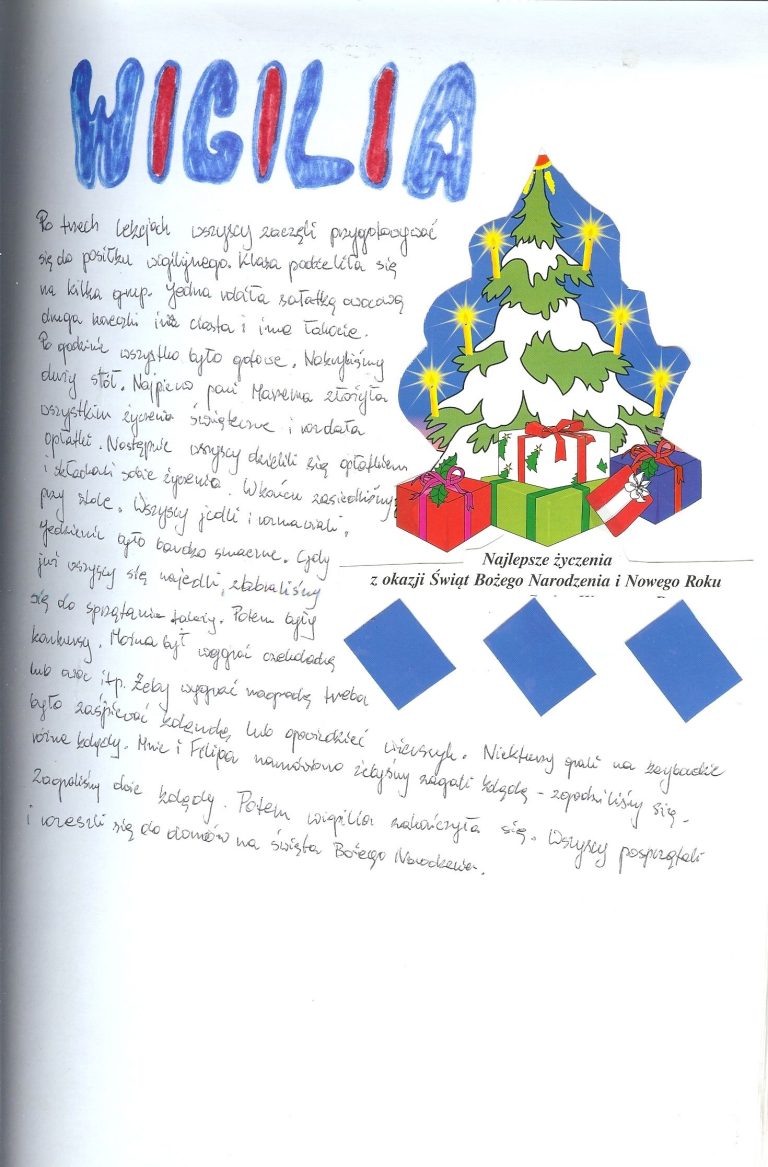 WIGILIA
Po trzech lekcjach wszyscy zaczęli przygotowywać
się do posiłku wigilijnego. Klasa podzieliła się
na kilka grup. Jedna robiła sałatkę owocową
druga kanapki inna ciasta i inne łakocie.
Po godzinie wszystko było gotowe. Nakryliśmy
duży stół. Najpierw pani Marzena złożyła
wszystkim życzenia świąteczne i rozdała
opłatki. Następnie wszyscy dzielili się opłatkiem
i składali sobie życzenia. W końcu zasiedliśmy
przy stole. Wszyscy jedli i rozmawiali,
jedzenie było bardzo smaczne. Gdy
już wszyscy się najedli, zabraliśmy
się do sprzątania talerzy. Potem były
konkursy. Można był wygrać czekoladkę
lub owoc itp. Żeby wygrać nagrodę trzeba
było zaśpiewać kolendę lub opowiedzieć wierszyk. Niektórzy grali na keybordzie
różne kolędy. Mnie i Filipa namówiono żebyśmy zagrali kolędę - zgodziliśmy się.
Zagraliśmy dwie kolędy. Potem wigilia zakończyła się. Wszyscy posprzątali
i rozeszli się do domów na święta Bożego Narodzenia.
Najlepsze życzenia
z okazji Świąt Bożego Narodzenia i Nowego Roku